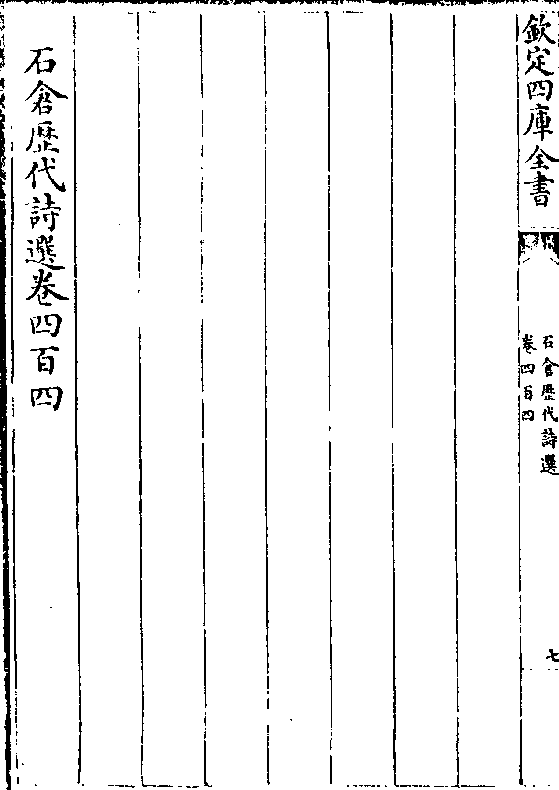 欽定四庫全書
石倉歷代詩選
卷四百四
七
石倉歷代詩選卷四百四